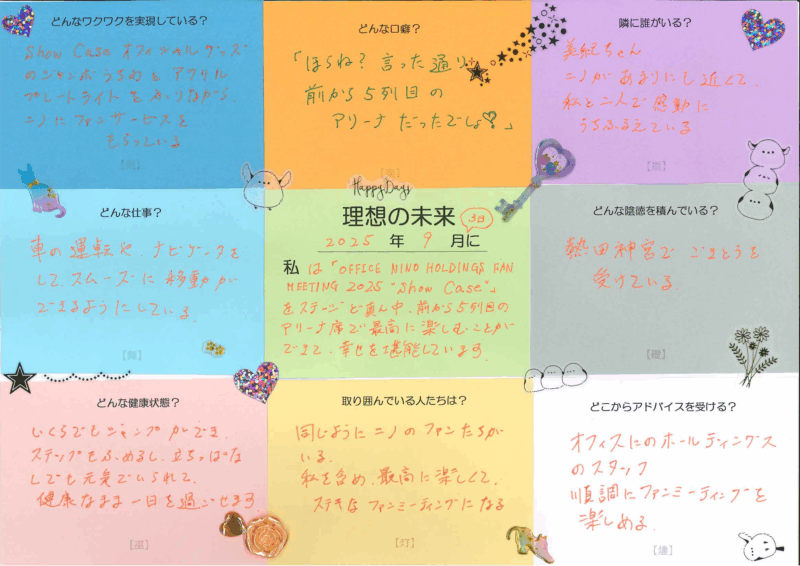 どんなワクワクを実現している?
Show Case オフィシャルグッズ
のジャンボうちわと アクリル
プレートライトを ふりながら、
ニノにファンサービスを
もらっている
どんな口癖?
「ほらね? 言った通り
前から5列目の
アリーナ だったでしょ♡」
隣に誰がいる?
美紀ちゃん
ニノがあまりにも近くて、
私と二人で感動に
うちふるえている
どんな仕事?
車の運転や、ナビゲータを
して、スムーズに移動が
できるようにしている。
Happy Days
理想の未来
3日
2025 年 9 月に
私は「OFFICE NINO HOLDINGS FAN
MEETING 2025 "Show Case"」
をステージど真ん中、前から5列目の
アリーナ席で最高に楽しむことが
できて、幸せを堪能しています
どんな陰徳を積んでいる?
熱田神宮で ごきとうを
受けている
どんな健康状態?
いくらでもジャンプができ、
ステップをふめるし、立ちっぱな
しでも元気でいられて、
健康なまま一日を過ごせます
取り囲んでいる人たちは?
同じようにニノのファンたちが
いる。
私を含め、最高に楽しくて、
ステキなファンミーティングになる
どこからアドバイスを受ける?
オフィスにのホールディングス
のスタッフ
順調にファンミーティングを
楽しめる。